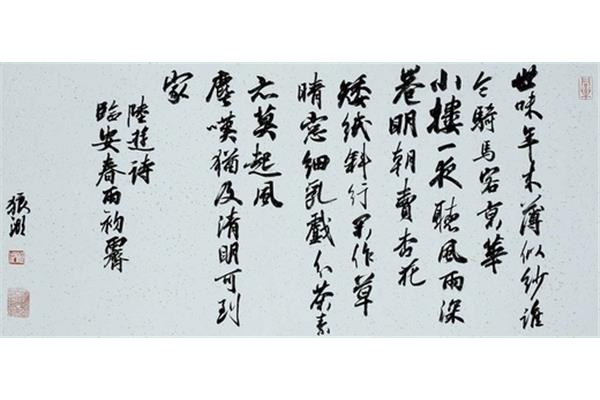 世味年来薄似紗誰
令騎馬客京華
小樓一夜聽風雨深
巷明朝賣杏花
矮紙斜行閒作草
晴窗細乳戲分茶素
衣莫起風
塵嘆猶及清明可到
家
陸游詩
臨安春雨初霽
振湖